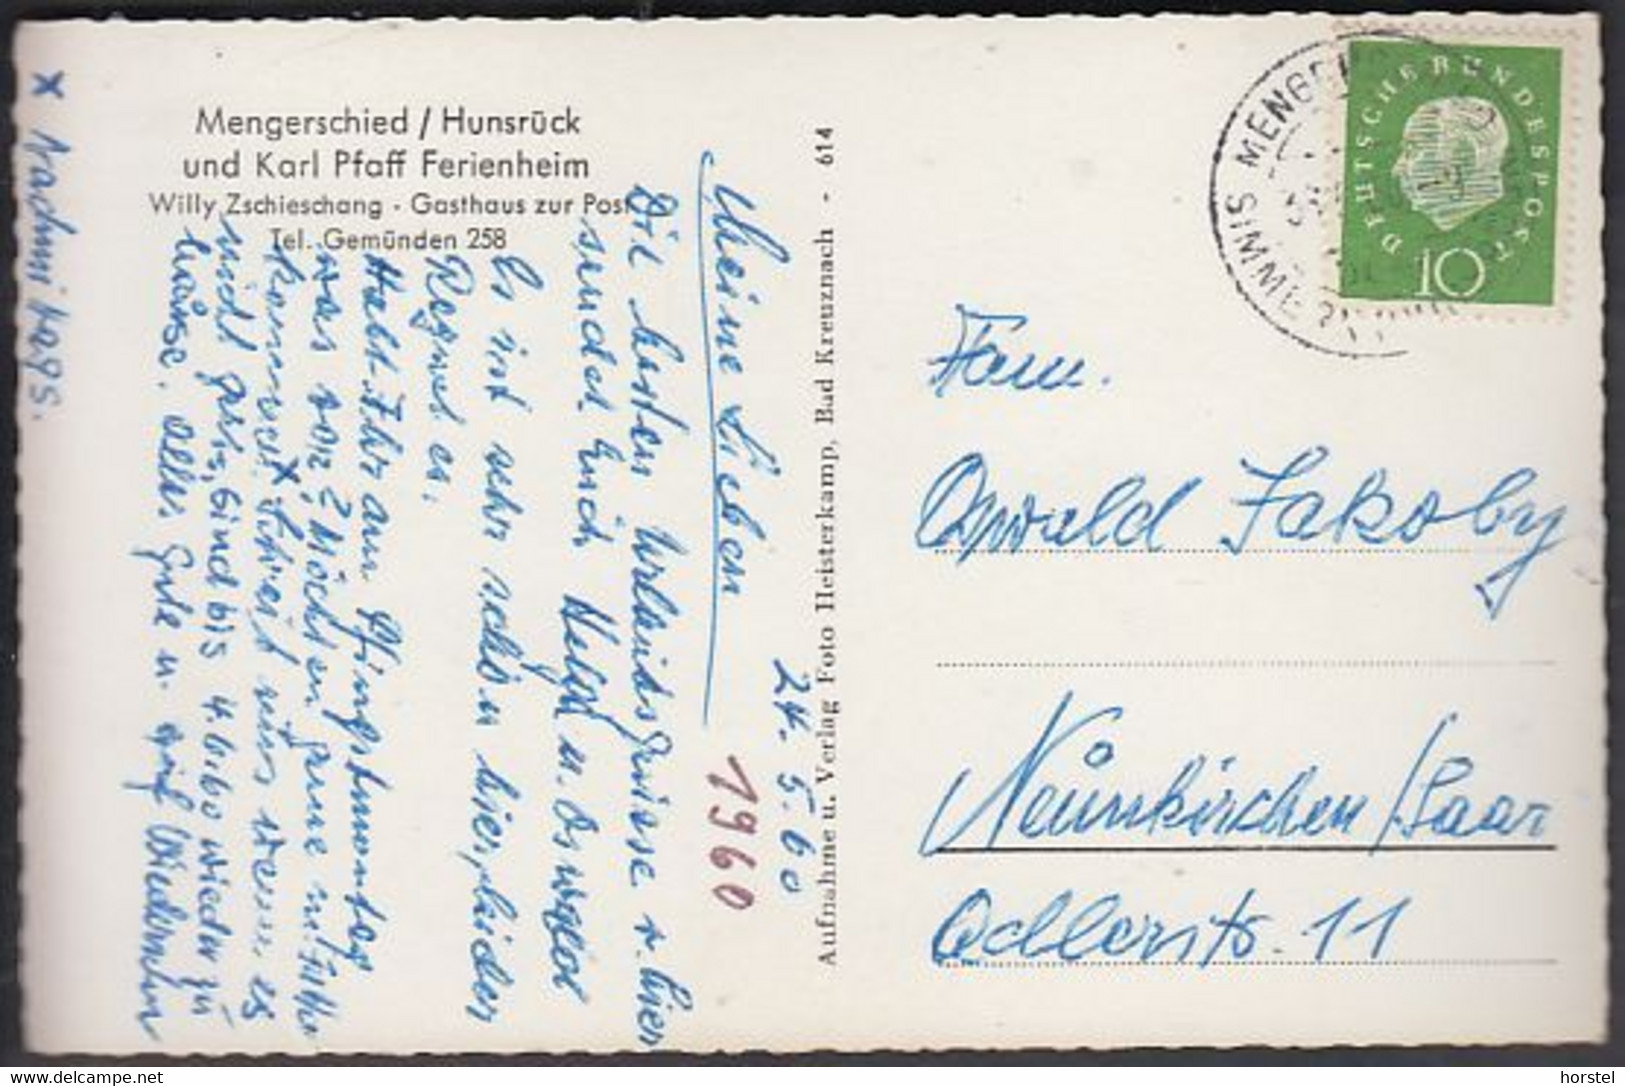 Mengerschied / Hunsrück
und Karl Pfaff Ferienheim
Willy Zschieschang - Gasthaus zur Post
Tel. Gemünden 258
24. 5. 60
1960
Meine Lieben
Die besten Urlaubsgrüsse v. hier
sendet Euch Helga u. Oswald
Es ist sehr schön hier, leider
Regnet es.
Habt Ihr am Pfingstmontag
was vor? Möchten gerne
kommen x Schreibt uns wenn es
nicht geht, Sind bis 4.6.60 wieder zu
hause. Alles Gute u. auf Wiedersehn
x Nachmittags.
Aufnahme u. Verlag Foto Heisterkamp, Bad Kreuznach - 614
DEUTSCHE BUNDESPOST
10
Fam.
Oswald Jakoby
Neunkirchen/Saar
Adlerstr. 11
delcampe.net
horstel